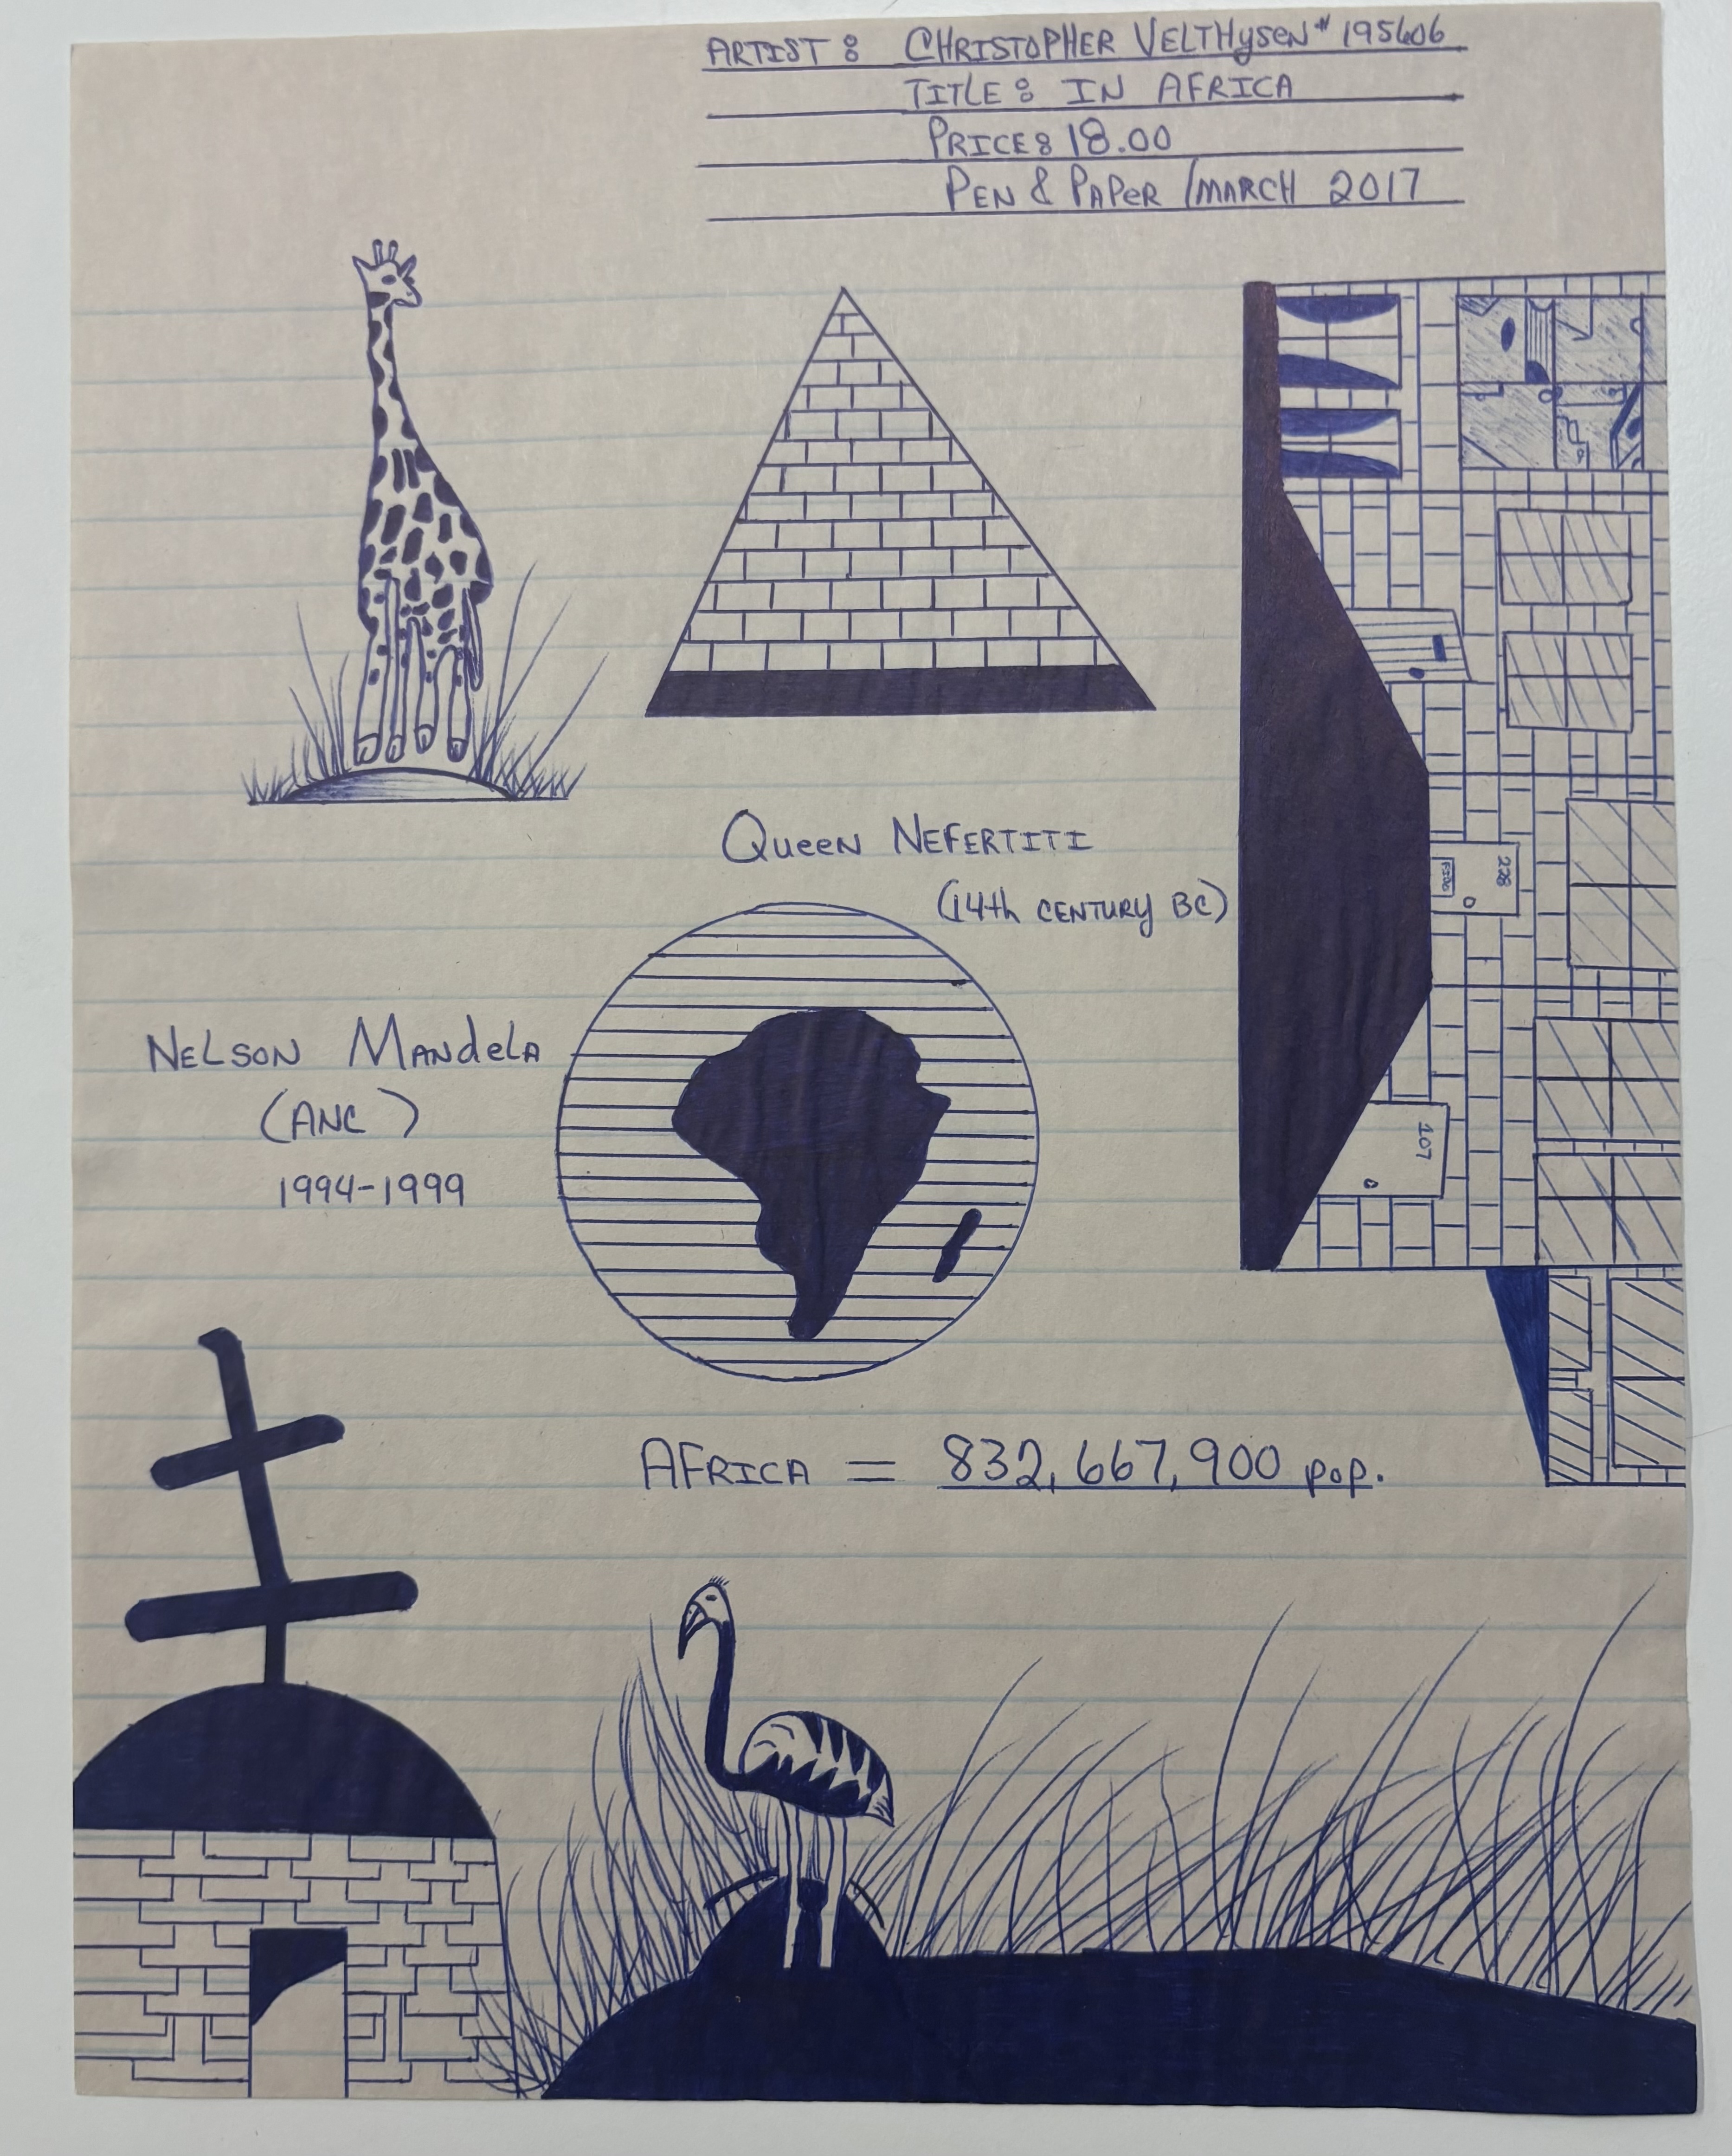 ARTIST: CHRISTOPHER VELTHYSEN #195606
TITLE: IN AFRICA
PRICE: 18.00
PEN & PAPER / MARCH 2017
QUEEN NEFERTITI
(14th CENTURY BC)
228
NELSON MANDELA
(ANC)
1994-1999
107
AFRICA = 832,667,900 pop.